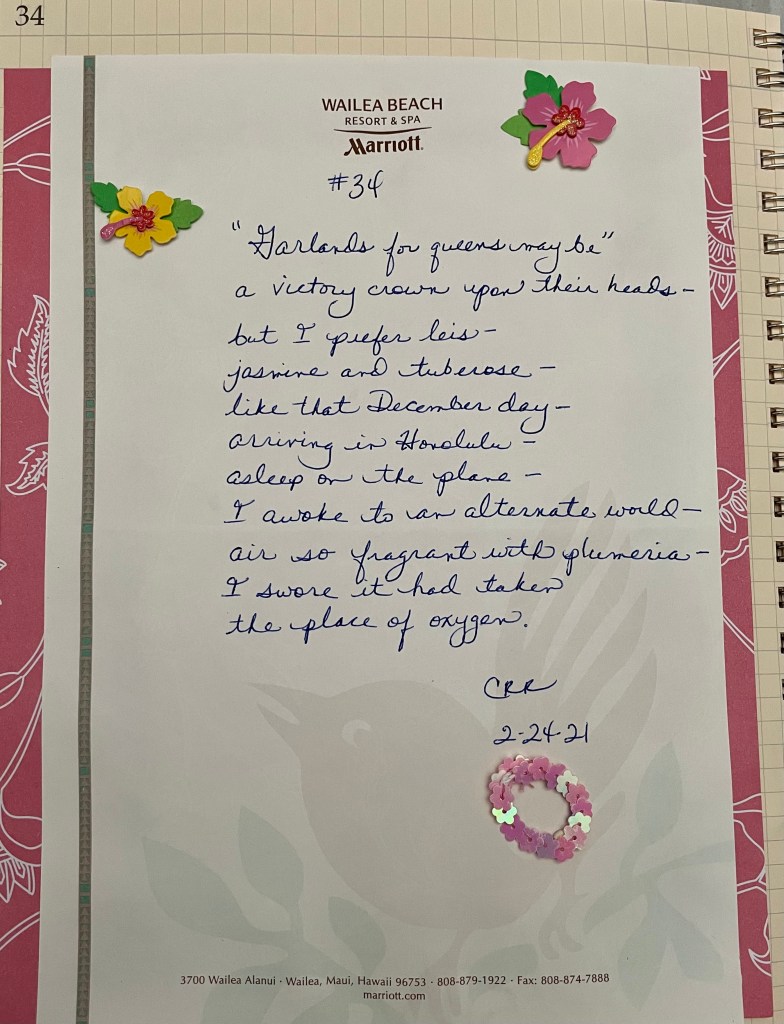 34
WAILEA BEACH
RESORT & SPA
Marriott®
#34
"Garlands for queens may be"
a victory crown upon their heads-
but I prefer leis-
jasmine and tuberose-
like that December day-
arriving in Honolulu-
asleep on the plane-
I awoke to an alternate world-
air so fragrant with plumeria-
I swore it had taken
the place of oxygen.
CRR
2-24-21
3700 Wailea Alanui · Wailea, Maui, Hawaii 96753 · 808-879-1922 · Fax: 808-874-7888
marriott.com